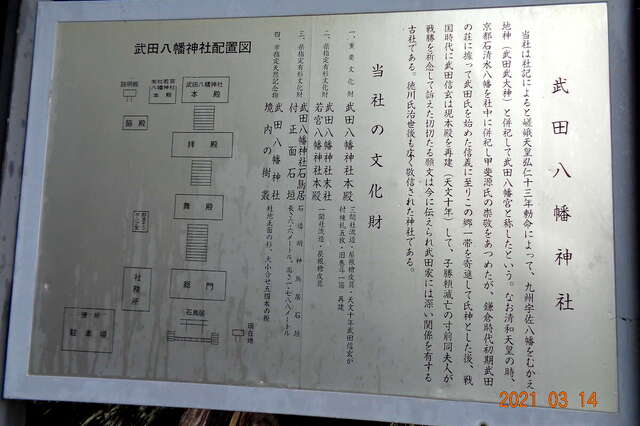 武田八幡神社
当社は社記によると嵯峨天皇弘仁十三年勅命によって、九州宇佐八幡をむかえ
地神（武田武大神）と併祀して武田八幡宮と称したという。なお清和天皇の時、
京都石清水八幡を社中に併祀し甲斐源氏の崇敬をあつめたが、鎌倉時代初期武田
の荘に拠って武田氏を始めた信義に至りこの郷一帯を寄進して氏神とした後、戦
国時代に武田信玄は現本殿を再建（天文十年）して、子勝頼滅亡の寸前同夫人が
戦勝を祈念して訴えた切切たる願文は今に伝えられ武田家には深い関係を有する
古社である。徳川氏治世後も厚く敬信された神社である。
当社の文化財
一、重要文化財 武田八幡神社本殿 三間社流造・屋根檜皮葺・天文十年武田信玄が
付棟札五枚・旧巻斗一箇 再建
二、県指定有形文化財 武田八幡神社末社
若宮八幡神社本殿 一間社流造・屋根檜皮葺
三、県指定有形文化財 武田八幡神社石鳥居 石造明神鳥居石垣
付正面石垣 長さ六・六メートル、高さ一・七八メートル
四、市指定天然記念物 武田八幡神社
境内の樹叢 社地正面の杉、大小合せ五四本の他
武田八幡神社配置図
武田八幡神社
本殿
末社若宮
八幡神社
本殿
拝殿
舞殿
総門
石鳥居
社務所
便所
駐車場
現在地
2021 03 14